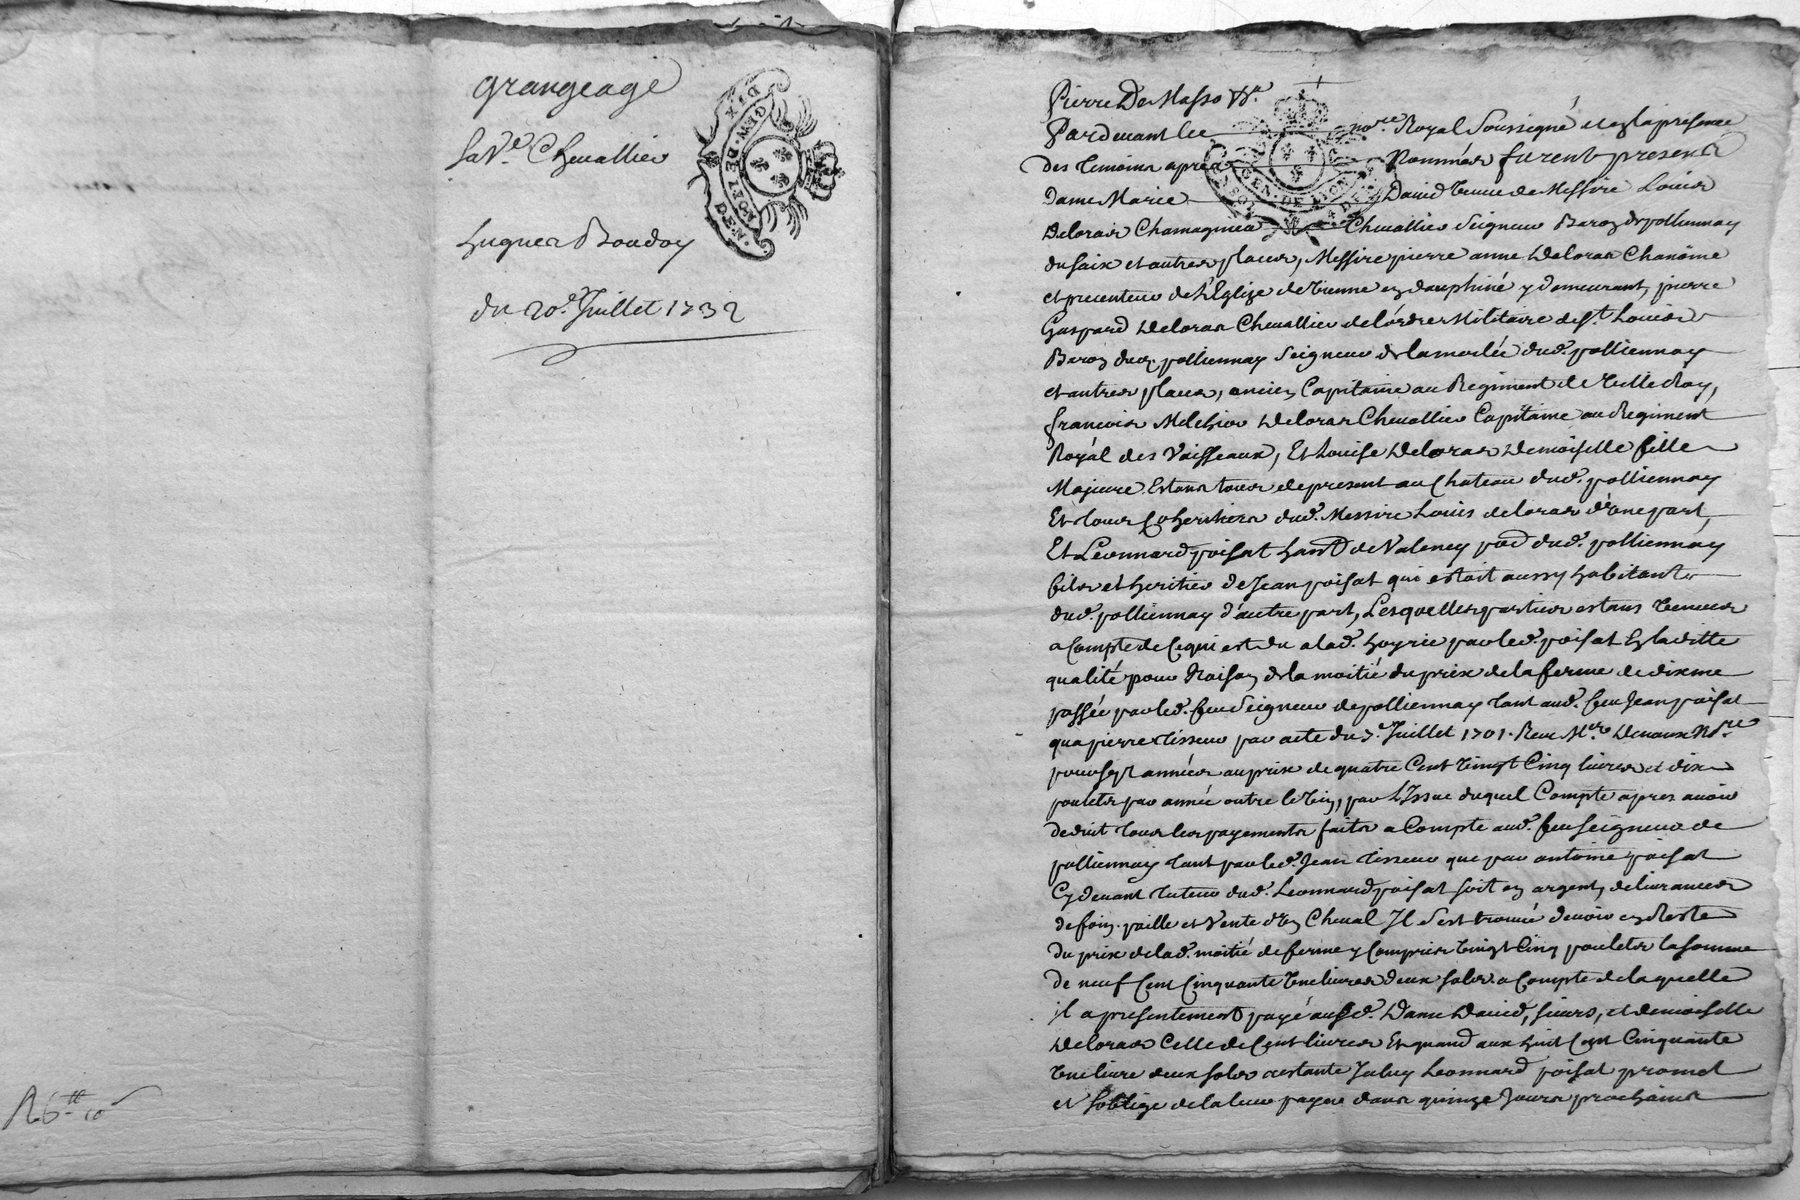 grangeage
la Ve. Chevallier
hugues Boudoy
du 20e. Juillet 1732
GEN. DE LION
R 6tt 10
Pierre De Masso
Pardevant le nore Royal soussigné et en la presence
des temoins apres Nommés furent presents
Dame Marie David veuve de Messire Louis
Deloras Chamagnieu Chevallier Seigneur Baron de polliennay
du saix et autres places, Messire pierre anne Deloras Chanoine
et precenteur de l'Eglize de vienne en dauphiné y demeurant, pierre
Gaspard Deloras Chevallier de l'ordre Militaire de st. Louis
Baron dud. polliennay Seigneur de la morlée dud. polliennay
et autres places, ancien Capitaine au Regiment de Villeroy,
francois Melchior Deloras Chevallier Capitaine au Regiment
Royal des Vaisseaux, Et Louise Deloras Demoiselle fille
Majeure Estans tous de present au Chateau dud. polliennay
Et tous Coheritiers dud. Messire Louis deloras d'une part,
Et Leonnard poisat hant de Valeney pad dud. polliennay
fils et heritier de Jean poisat qui estoit aussy habitant
dud. polliennay d'autre part, Lesquelles parties estans venues
a Compte de Ce qui est du a lad. hoyrie par led. poisat En laditte
qualité pour Raison de la moitié du prix de la ferme de dixme
passée par led. feu Seigneur de polliennay tant aud. feu Jean poisat
qua pierre tisseur par acte du 7e. Juillet 1701. Reçu Mre. Denoux Nore
pour sept années au prix de quatre Cent vingt Cinq livres et dix
poulets par année outre le vin, par L'Issue duquel Compte apres avoir
deduit tous les payements faits a Compte aud. feu seigneur de
pollienay tant par led. Jean tisseur que par antoine poisat
Cydevant tuteur dud. Leonnard poisat soit en argent, delivrances
de foin paille et Vente d'un Cheval Il s'est trouvé devoir en Reste
du prix de lad. moitié de ferme y Compris vingt Cinq poulets la somme
de neuf Cent Cinquante une livres deux sols a Compte de laquelle
il a presentement payé ausd. Dame David, sieurs, et demoiselle
Deloras Celle de Cent livres Et quand aux huit Cent Cinquante
une livre deux sols restante Iceluy Leonnard poisat promet
et soblige de la leur payer dans quinze Jours prochains